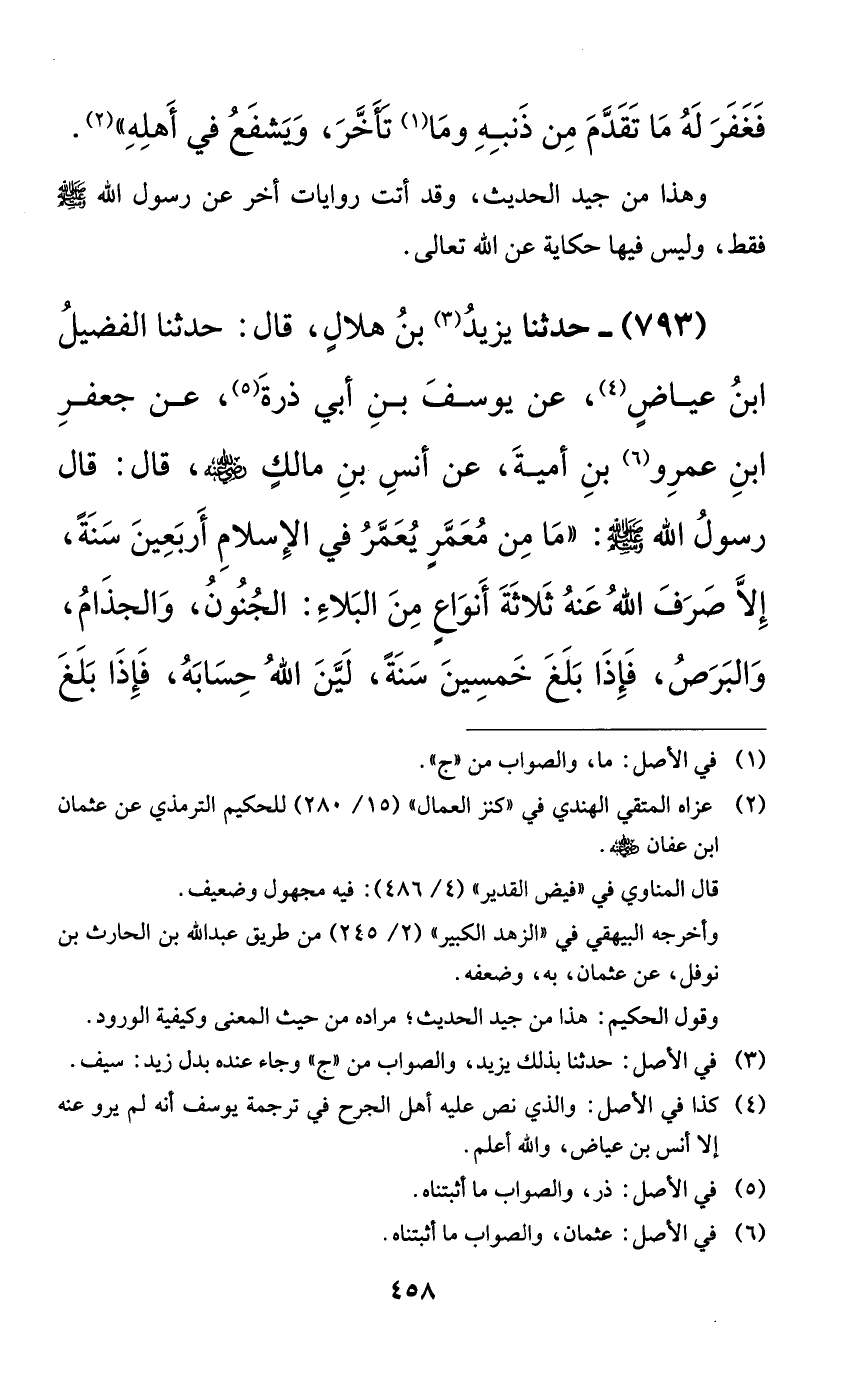 فَغَفَرَ لَهُ مَا تَقَدَّمَ مِن ذَنبِهِ ومَا(١) تَأَخَّرَ، وَيَشفَعُ في أَهلِهِ»(٢).
وهذا من جيد الحديث، وقد أتت روايات أخر عن رسول الله ﷺ
فقط، وليس فيها حكاية عن الله تعالى.
(٧٩٣) ـ حدثنا يزيدُ(٣) بنُ هلالٍ، قال: حدثنا الفضيلُ
ابنُ عياضٍ(٤)، عن يوسفَ بنِ أبي ذرةَ(٥)، عن جعفرِ
ابنِ عمرِو(٦) بنِ أميةَ، عن أنسِ بنِ مالكٍ رضي الله عنه، قال: قال
رسولُ الله ﷺ: «مَا مِن مُعَمَّرٍ يُعَمَّرُ في الإِسلامِ أَربَعِينَ سَنَةً،
إِلاَّ صَرَفَ اللهُ عَنهُ ثَلاثَةَ أَنوَاعٍ مِنَ البَلاءِ: الجُنُونُ، وَالجذَامُ،
وَالبَرَصُ، فَإِذَا بَلَغَ خَمسِينَ سَنَةً، لَيَّنَ اللهُ حِسَابَهُ، فَإِذَا بَلَغَ
(١) في الأصل: ما، والصواب من «ج».
(٢) عزاه المتقي الهندي في «كنز العمال» (١٥/ ٢٨٠) للحكيم الترمذي عن عثمان
ابن عفان رضي الله عنه.
قال المناوي في «فيض القدير» (٤/ ٤٨٦): فيه مجهول وضعيف.
وأخرجه البيهقي في «الزهد الكبير» (٢/ ٢٤٥) من طريق عبدالله بن الحارث بن
نوفل، عن عثمان، به، وضعفه.
وقول الحكيم: هذا من جيد الحديث؛ مراده من حيث المعنى وكيفية الورود.
(٣) في الأصل: حدثنا بذلك يزيد، والصواب من «ج» وجاء عنده بدل زيد: سيف.
(٤) كذا في الأصل: والذي نص عليه أهل الجرح في ترجمة يوسف أنه لم يرو عنه
إلا أنس بن عياض، والله أعلم.
(٥) في الأصل: ذر، والصواب ما أثبتناه.
(٦) في الأصل: عثمان، والصواب ما أثبتناه.
٤٥٨